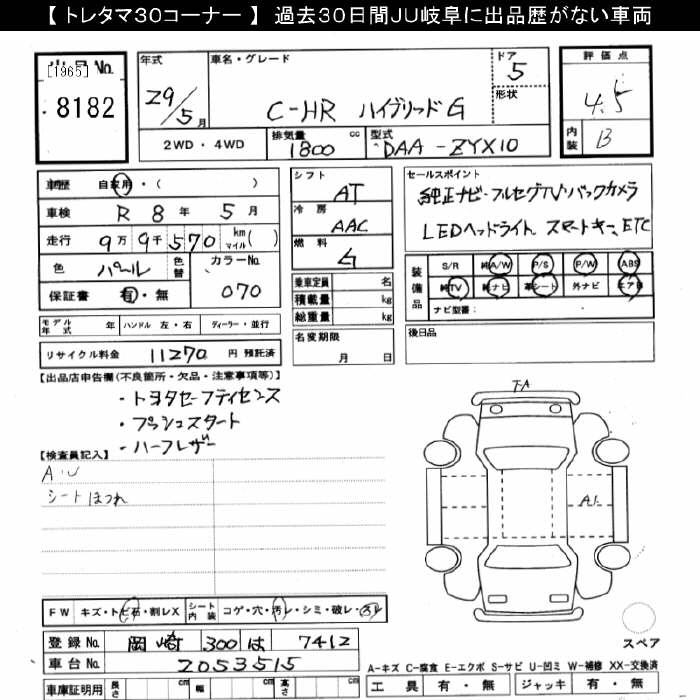 【 トレタマ30コーナー 】 過去30日間JU岐阜に出品歴がない車両
出品No.
[1965]
8182
年式
29/5月
車名・グレード
C-HR ハイブリッドG
ドア
5
形状
評価点
4.5
内装
B
2WD・4WD
排気量 cc
1800
型式
DAA-ZYX10
車歴 自家用・( )
車検 R 8年 5月
走行 9万9千570 km マイル( )
色 パール 色替
カラーNo.
070
保証書 有・無
シフト
AT
冷房
AAC
燃料
G
乗車定員 名
積載量 kg
総重量 kg
セールスポイント
純正ナビ・フルセグTV・バックカメラ
LEDヘッドライト スマートキー ETC
装備品
S/R 純A/W P/S P/W ABS
純TV 純ナビ 革シート 外ナビ エアB
ナビ型番:
モデル年式 年 ハンドル 左・右 ディーラー・並行
名変期限
月 日
後日品
リサイクル料金 11270 円 預託済
【出品店申告欄(不良箇所・欠品・注意事項等)】
・トヨタセーフティセンス
・プッシュスタート
・ハーフレザー
【検査員記入】
A・U
シートほつれ
TA
A1
FW キズ・トビ石・割レX シート内装 コゲ・穴・汚レ・シミ・破レ・スレ
登録No. 岡崎 300 は 7412
車台No. 2053515
スペア
A-キズ C-腐食 E-エクボ S-サビ U-凹ミ W-補修 XX-交換済
車庫証明用 長さ cm 幅 cm 高さ cm
工具 有・無 ジャッキ 有・無